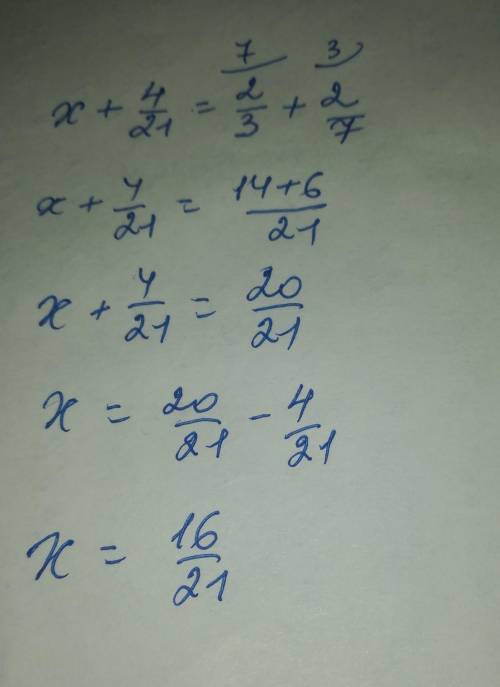 x + 4/21 = 7⁀ 2/3 + 3⁀ 2/7
x + 4/21 = (14+6)/21
x + 4/21 = 20/21
x = 20/21 - 4/21
x = 16/21